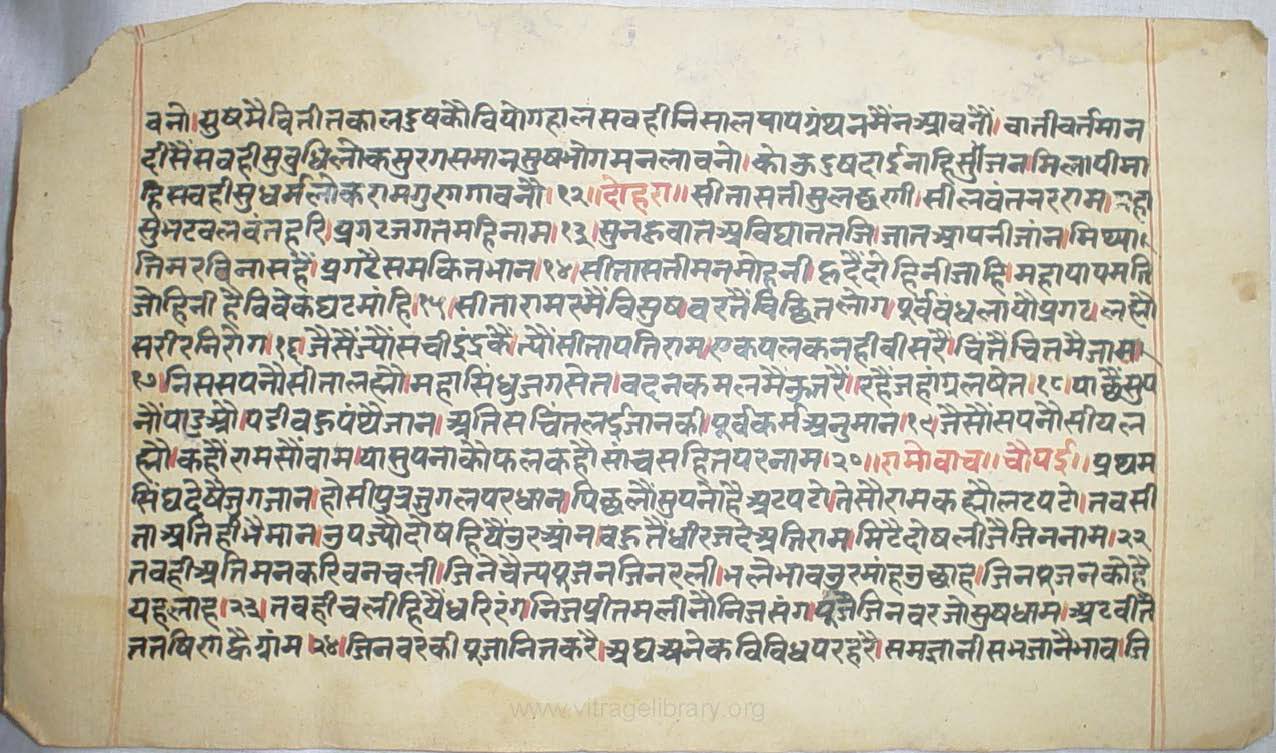 वनो।सुषमैवितीतकालदुषकौवियोगहालसवहीनिसालपापग्रंथनमैंनआवनौं।चातीवर्तमान
दीसैंसवहीसुवुधिलोकसुरगसमानसुषभोगमनलावनो।कोऊदुषदाईनाहिसुजनमिलापीमा
हिसवहीसुधर्मलोकरामगुरागगावनौ।१२॥दोहरा॥सीतासतीसुलछरगी।सीलवंतनरराम।
सुभटवलवंतहरि।प्रगटजगतमहिनाम।१३।सुनहुवातअविघाततजि।जातआपनीजांन।मिथ्या
तिमरविनासहैं।प्रगटैसमकितभान।१४।सीतासतीमनमोहनी।हृदैंदोहिनीजाहि।महापापमति
जोहिनी।हैविवेकघटमांहि।१५।सीतारामरमैंविसुष।वरतैंवंछितलोग।पूर्ववधलायौप्रगट।लह्यौ
सरीरनिरोग।१६।जैसैंज्यौंसचीइंद्रकैं।त्यौंसीतापतिराम।एकपलकनहीवीसरैं।चिंतैंचितमैजाम।
१७।निससपनौसीतालह्यौ।महासिंधुजगसेत।वदनकमलमैंऊतरै।रहैंजहांग्रलषेत।१८।पाछैंसुप
नौंपाइऔ।पडीवहुपंथैजान।अतिसचिंतलईजानकी।पूर्वकर्मअनुमान।१९।जैसौंसपनौसीयल
ह्यौ।कहौंरामसौंवाम।यासुपनाकोफलकहौ।साचसहितपरनाम।२०॥रामोवाच॥चौपई॥प्रथम
सिंघदेषेजुगजान।होसीपुत्रजुगलपरधान।पिछलौंसुपनौहैअटपटो।तेसौरामकह्यौलटपटो।तवसी
ताअतिहीभैमान।उपज्यौदोषहियैंउरआंन।वहुतैंधीरजदेअतिराम।मिटैदोषलीजैजिननाम।२२
तवहीअतिमनकरिवनचली।जिनचैत्यपूजनजिनरली।भलेभावउरमांहउछाह।जिनपूजनकोहै
यहलाह।२३।तवहीचलीहियैंधरिरंग।निजप्रीतमलीनौनिजसंग।पूजैजिनवरजोसुषधाम।अटवीत
ततषिराहैग्रांम।२४।जिनवरकीपूजानितकरै।अघअनेकविविधपरहरै।समज्ञानीसमजानैभाव।जि
www.vitragelibrary.org